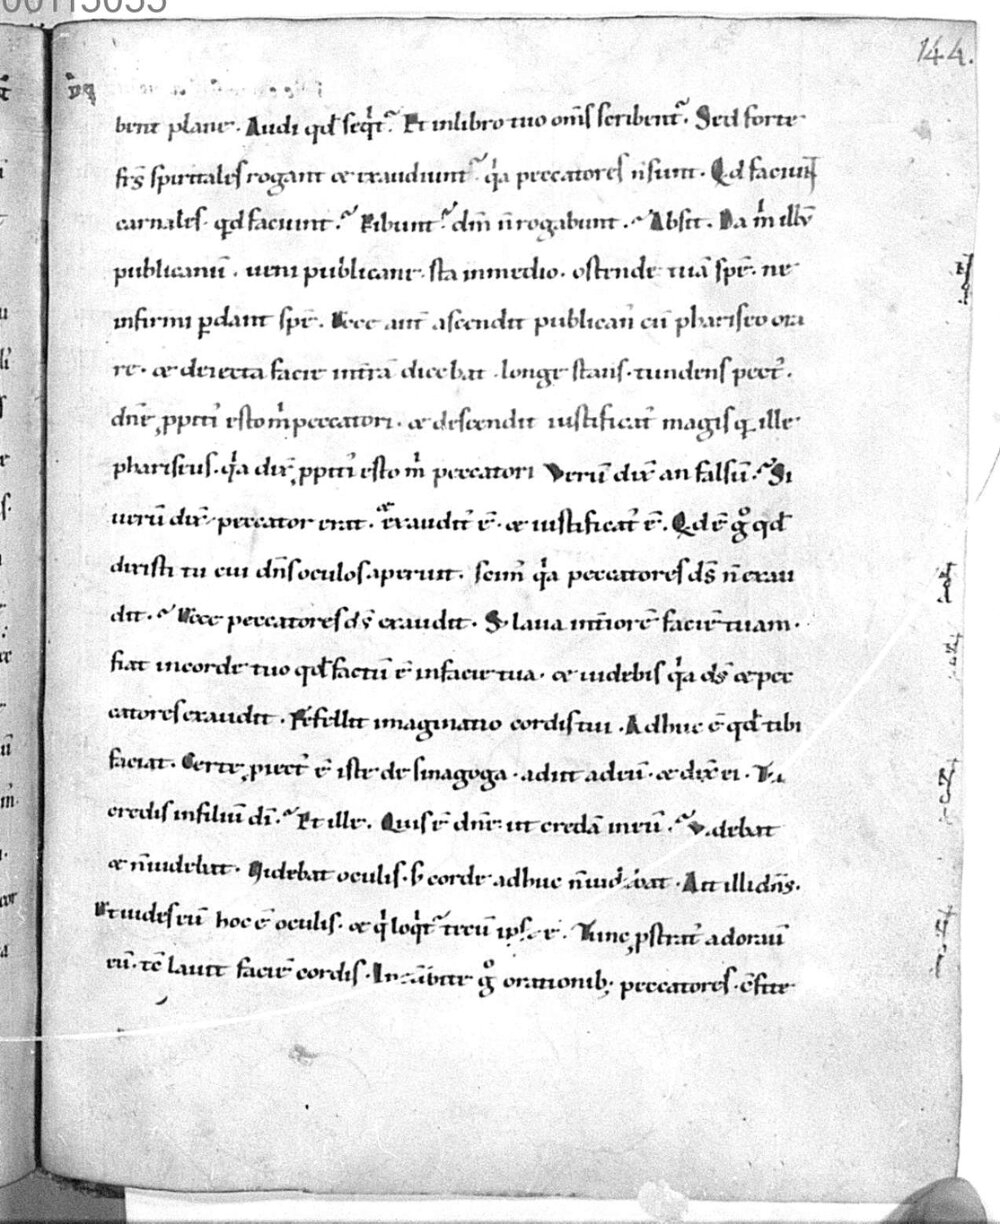 00115033
144.
bent plane. Audi qd̄ seqͥt̄? Et in libro tuo om̄s scribent᷑? Sed forte
fr̄s spiritales rogant & exaudiunt᷑ qͥa peccatores n̄ sunt. Qd faciunt
carnales. qd faciunt? Peribunt? dm̄ n̄ rogabunt? Absit. Da mͥ illū
publicanū. ueni publicane. sta in medio. ostende tuā spē. ne
infirmi ꝑdant spē. Ecce aut̄ ascendit publican᷒ cū phariseo ora
re. & deiecta facie in t̄rā dicebat. longe stans. tundens pect᷒.
dn̄e ꝓpiti᷒ esto mͥ peccatori. & descendit iustificat᷒ magis qͣ ille
phariseus. qͥa dix̄ ꝓpiti᷒ esto mͥ peccatori Verū dix̄ an falsū? Si
uerū dix̄ peccator erat. & exaudit᷒ ē. & iustificat᷒ ē. Qd ē gͦ qd̄
dixisti tu cui dn̄s oculos aperuit. scim᷒ qͥa peccatores ds̄ n̄ exau
dit.? Ecce peccatores ds̄ exaudit. S; laua int̄iorē faciē tuam.
fiat in corde tuo qd̄ factū ē in facie tua. & uidebis qͥa ds̄ & pec
catores exaudit. Fefellit imaginatio cordis tui. Adhuc ē qd̄ tibi
faciat. Certe ꝓiect᷒ ē iste de sinagoga. adiit ad eū. & dix̄ ei. Tu
credis in filiū dī? Et ille. Quis ē dn̄e: ut credā in eū? Videbat
& n̄ uidebat. Videbat oculis. s; corde adhuc n̄ uidebat. Ait illi dn̄s.
Et uides eū hoc ē oculis. & qͥ loqͥt᷑ tecū ipse ē. Tunc ꝓstrat᷒ adorauī
eū. tc̄ lauit faciē cordis. Incūbite gͦ orationib; peccatores. c̄fite